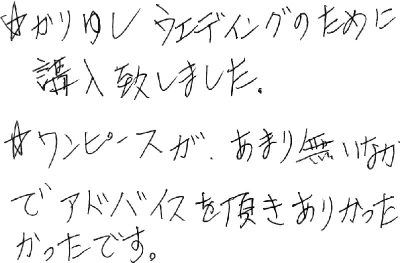 ☆かりゆしウエディングのために
講入致しました。
☆ワンピースが、あまり無いなか
でアドバイスを頂きありかった
かったです。